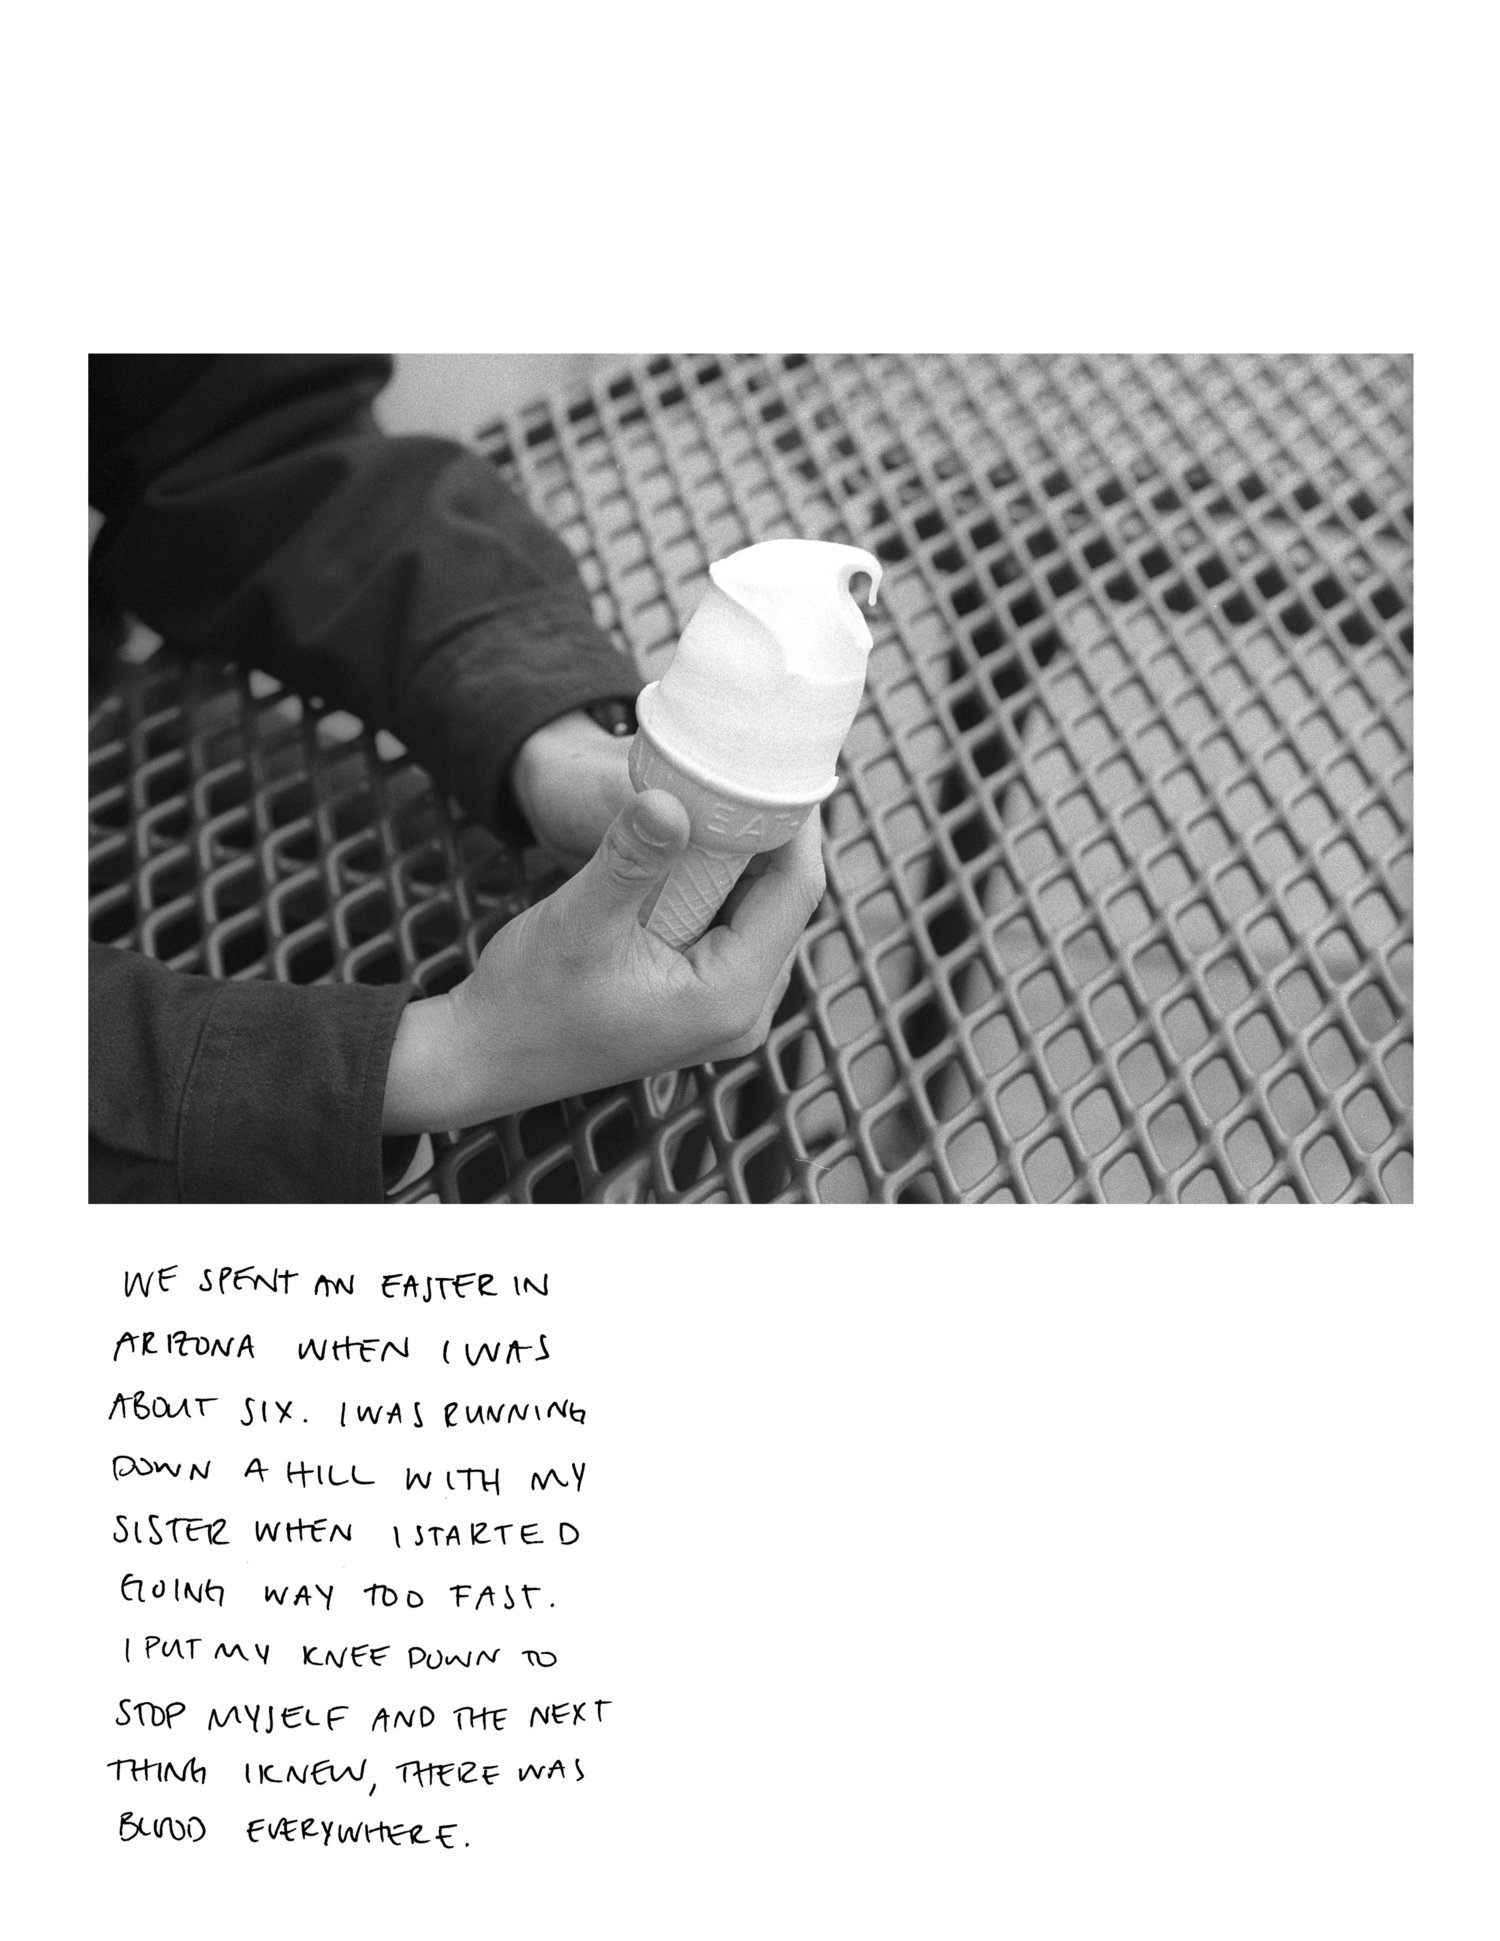 EAT
WE SPENT AN EASTER IN
ARIZONA WHEN I WAS
ABOUT SIX. I WAS RUNNING
DOWN A HILL WITH MY
SISTER WHEN I STARTED
GOING WAY TOO FAST.
I PUT MY KNEE DOWN TO
STOP MYSELF AND THE NEXT
THING I KNEW, THERE WAS
BLOOD EVERYWHERE.